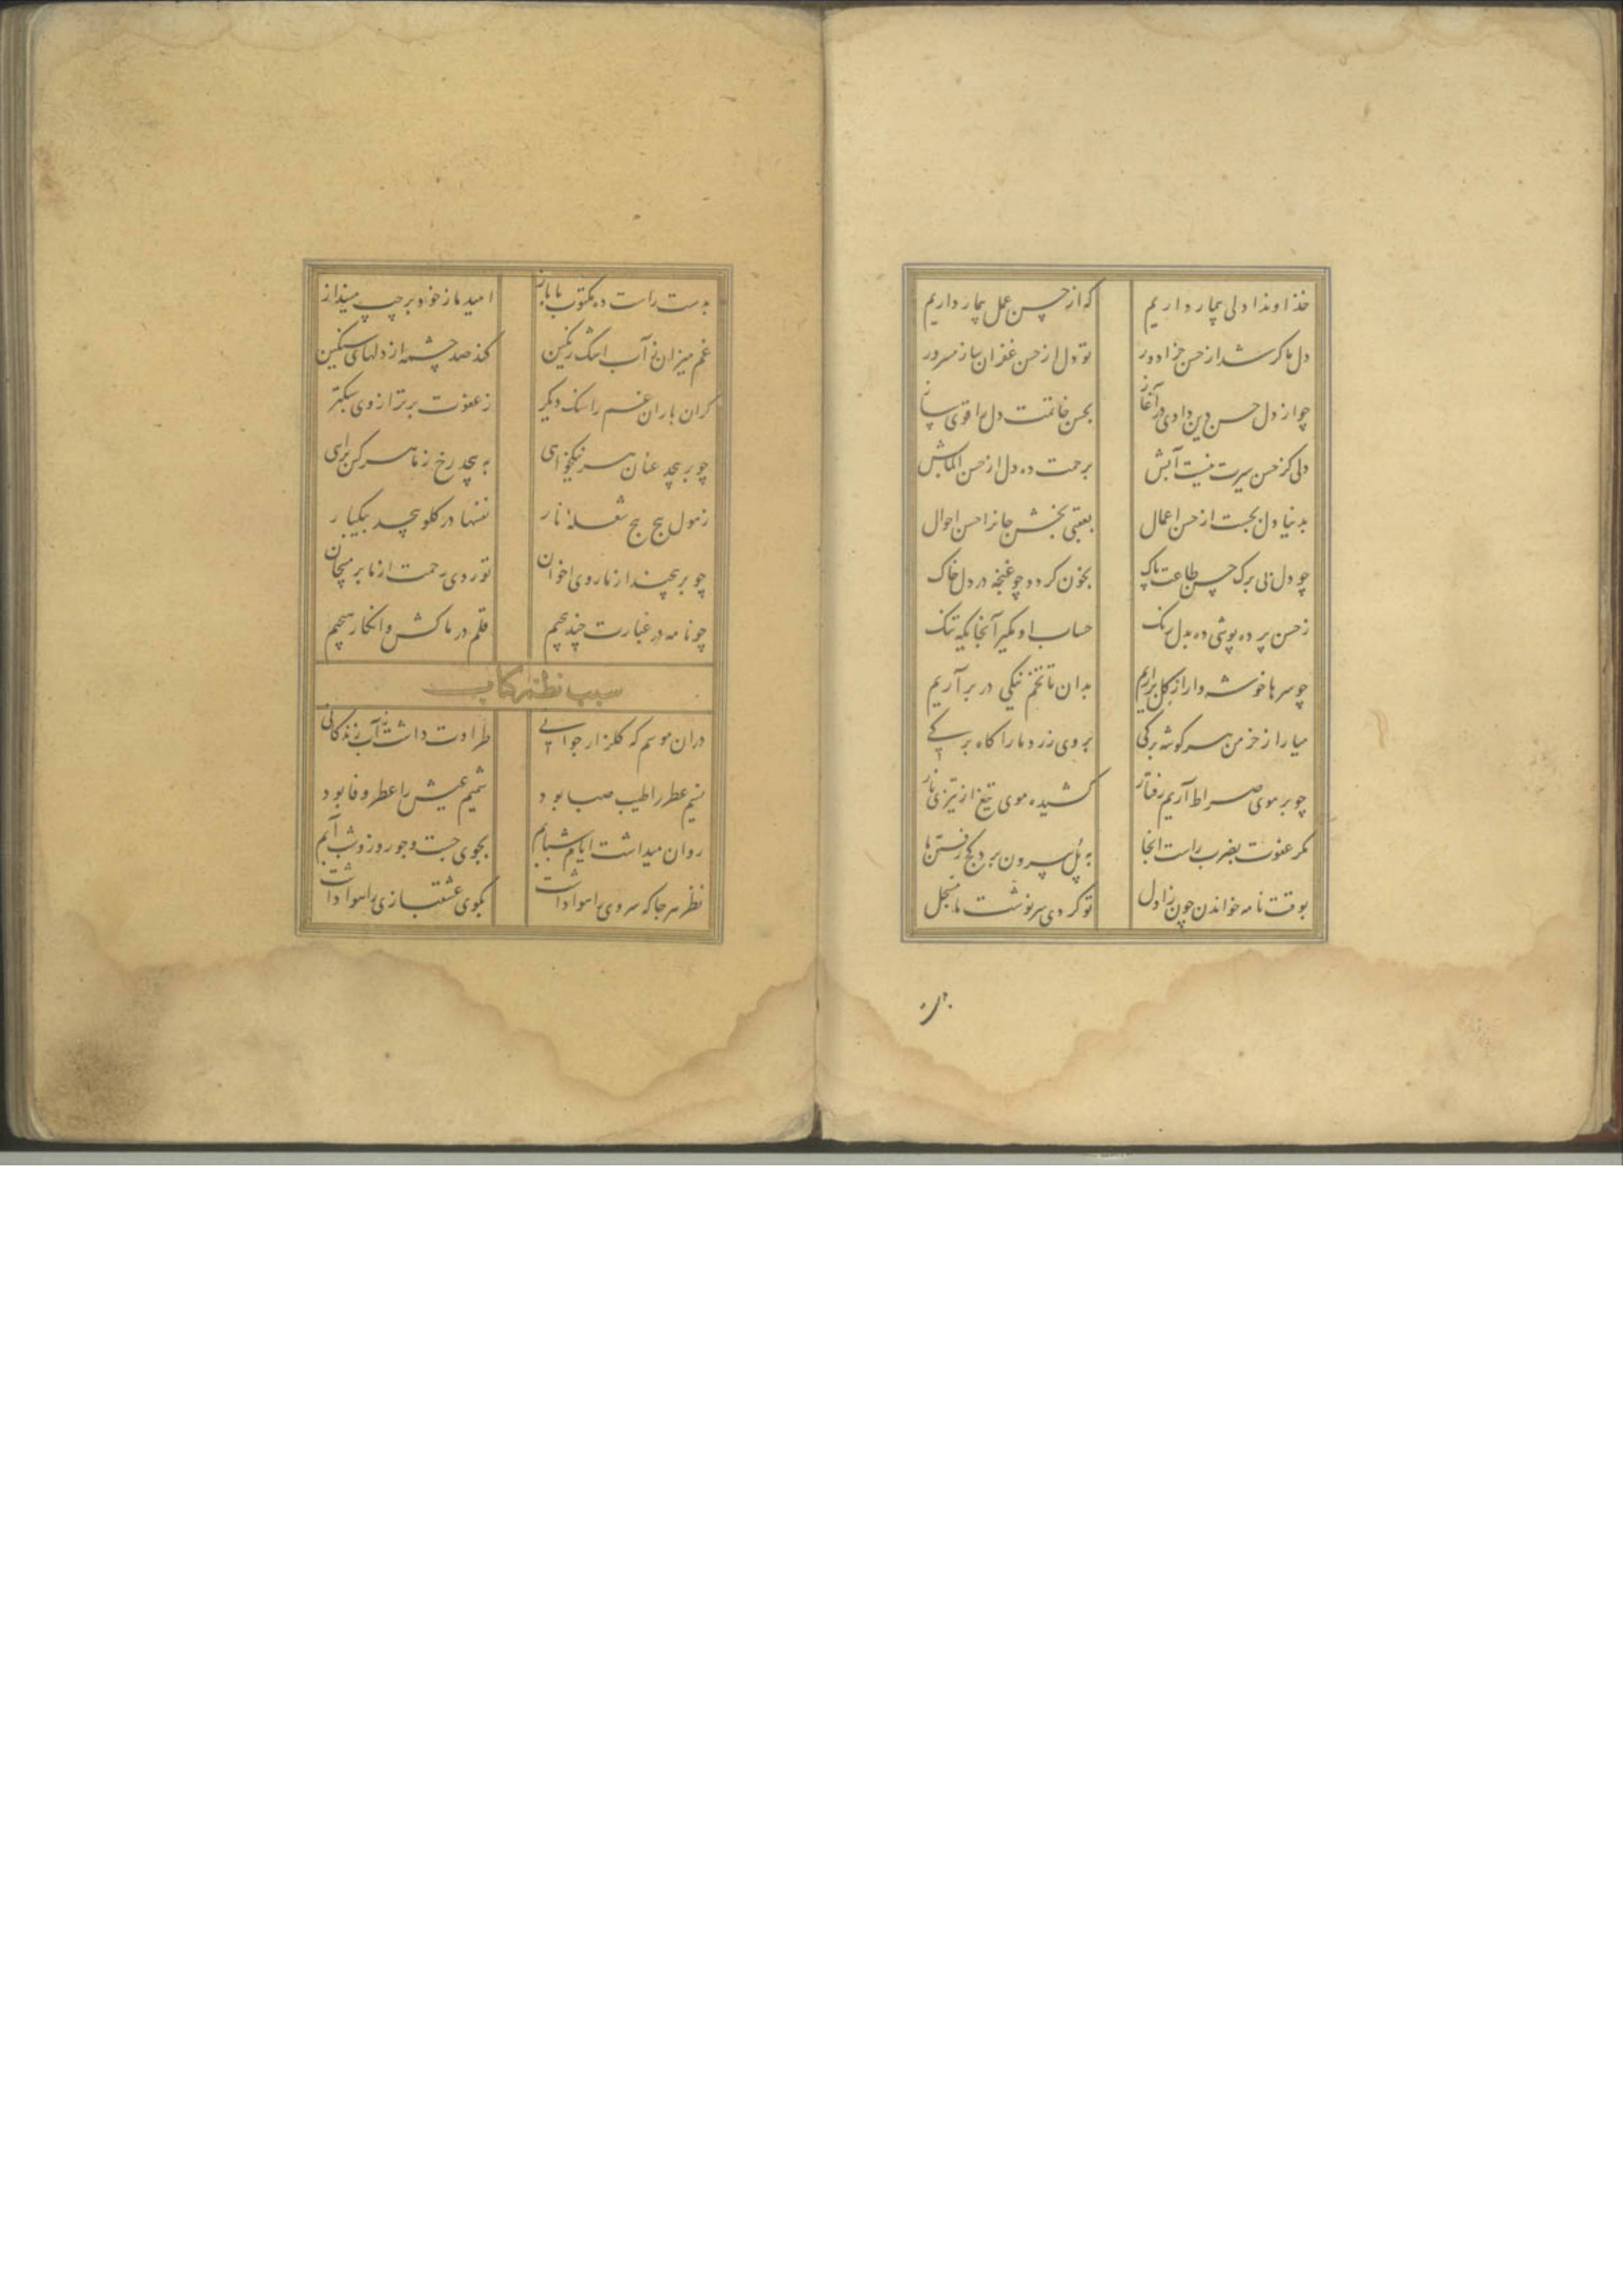 خداوندا دلی بیمار داریم که از حسن عمل بیمار داریم
دل ما کر شد از حسن جزا دور تو دل از حسن غفران ساز مسرور
چو از دل حسن دین دادی در آغاز بحسن خاتمت دل را قوی ساز
دلی کز حسن سیرت نیست آبش برحمت ده دل از حسن
بدنیا دل بجست از حسن اعمال بعقبی بخش جانرا حسن احوال
چو دل بی برک حسن طاعت پاک بخون کردد چو غنچه در دل خاک
ز حسن پرده پوشی ده بدل رنک حساب او مکیر آنجایکه تنک
چو سرها خوشه وار از کل براریم بدان تا تخم نیکی در بر آریم
میارا ز خرمن هر کوشه برکی بروی زرد ما را کاه برکی
چو بر موی صراط آریم رفتار کشیده موی تیغ از تیزی نار
مکر عفوت بضرب راست انجا به پل بیرون برد کج رفتن ما
بوقت نامه خواندن چون ز اول تو کردی سرنوشت ما مسجل
بدست
بدست راست ده مکتوب ما باز امید ما ز خود بر چپ مینداز
غم میزان ز آب اشک رنکین کند صد چشمه از دلهای سنکین
کران باران غم را سنک دیکر ز عفوت بر ترازوی سبکتر
چو برپیچد عنان هر نیکخواهی به پیچد رخ ز ما هر کس برای
ز هول پیچ پیچ شعله نار نفسها در کلو پیچد بیکبار
چو برپیچند از ما روی اخوان تو روی رحمت از ما بر مپیچان
چو نامه در عبارت چند پیچم قلم در ما کش و انکار هیچم
سبب نظم کتاب
دران موسم که کلزار جوانی طراوت داشت ز آب زندکانی
نسیم عطر را طیب صبا بود شمیم عیش را عطر وفا بود
روان میداشت ایام شبابم بجوی جست و جو روز و شب آبم
نظر هر جا که سروی را هوا داشت بکوی عشقبازی را هوا داشت